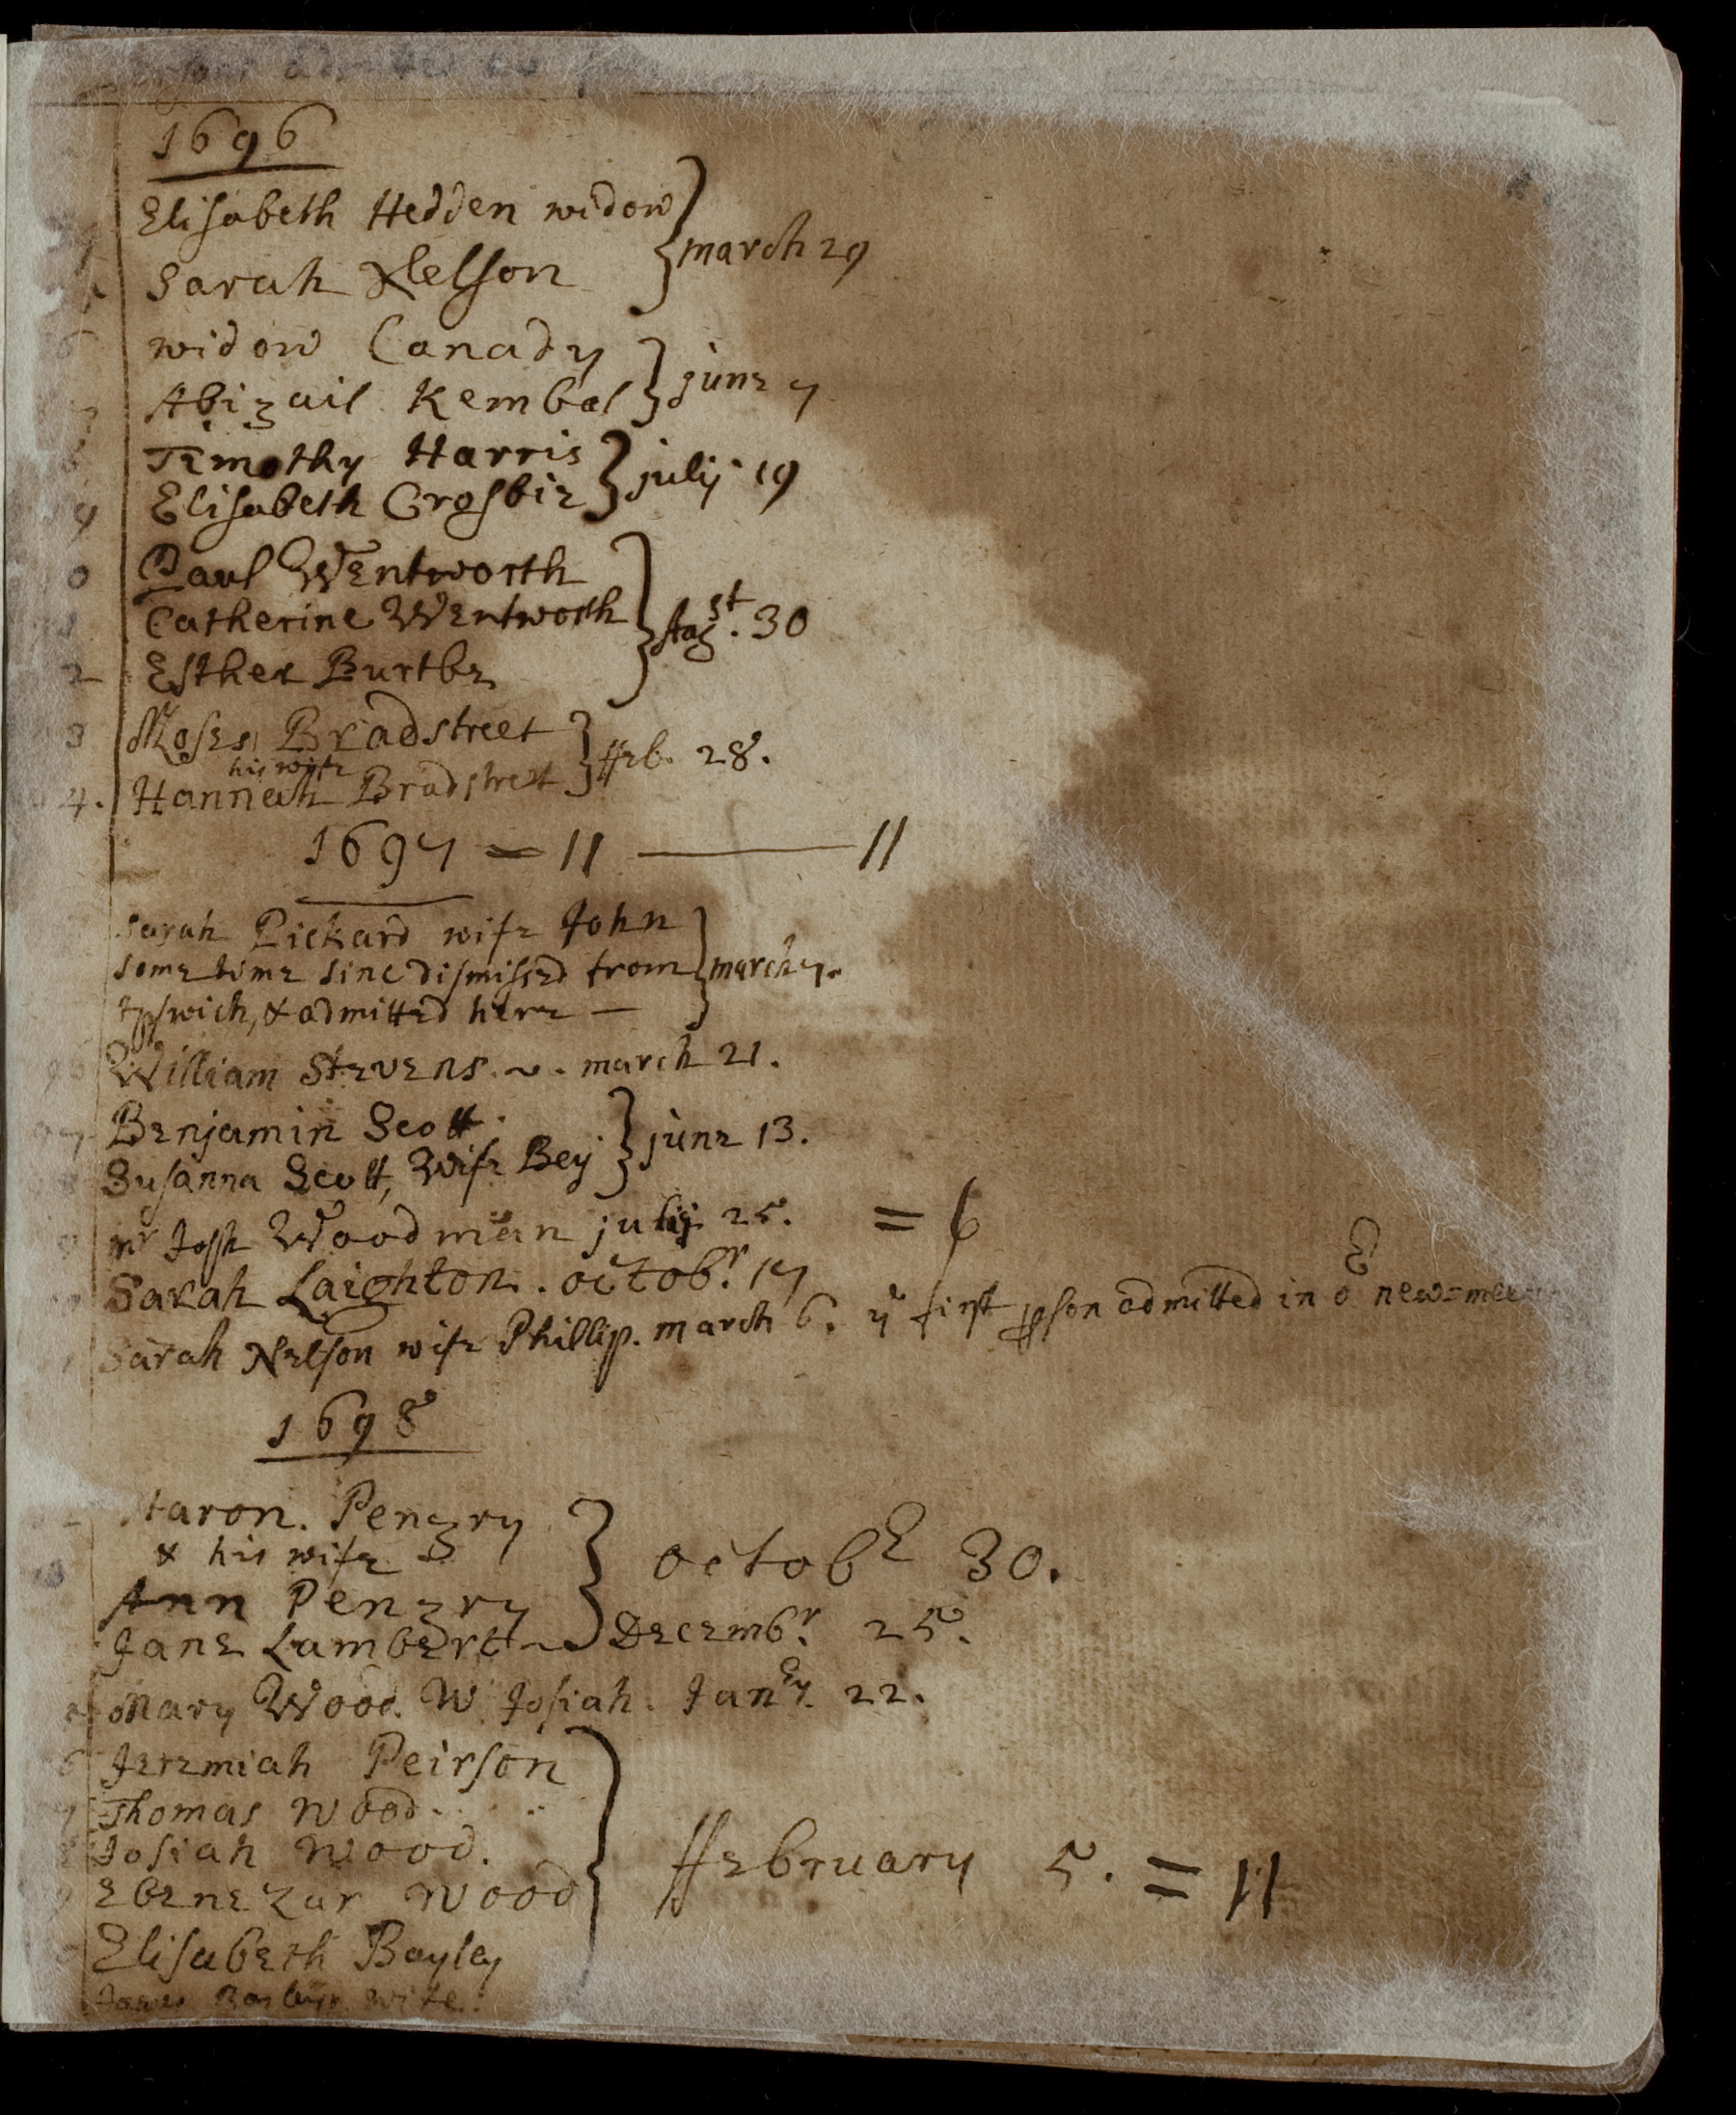 1696
Elisabeth Hedden widow } march 29
Sarah Nelson
widow Canady } june 7
Abigail Kembal
Timothy Harris } julij 19
Elisabeth Crosbie
Paul Wentworth
Catherine Wentworth } Aug.st 30
Esther Burtbe
3 Moses Bradstreet } ffeb. 28.
his wife
4. Hannah Bradstreet
1697 = 11 — 11
Sarah Pickard wife John
some time sinc dismissed from } march 7.
Ipswich, & admitted here —
William Stevens. ~. march 21.
Benjamin Scott. } june 13.
Susanna Scott, Wife Benj
mr Josh Woodman julij. 25. = 6
Sarah Laighton. octobr. 17
Sarah Nelson wife Phillip. march 6. ye first pson admitted in oe new=mee
1698
Aaron. Pengry
& his wife } octobr 30.
Ann Pengry
Jane Lambert ~ Decembr. 25.
Mary Wood. W. Josiah. Janry. 22.
Jeremiah Peirson
Thomas Wood.
Josiah Wood. } ffebruary 5. = 11
Ebenezar Wood
Elisabeth Bayley
wife.